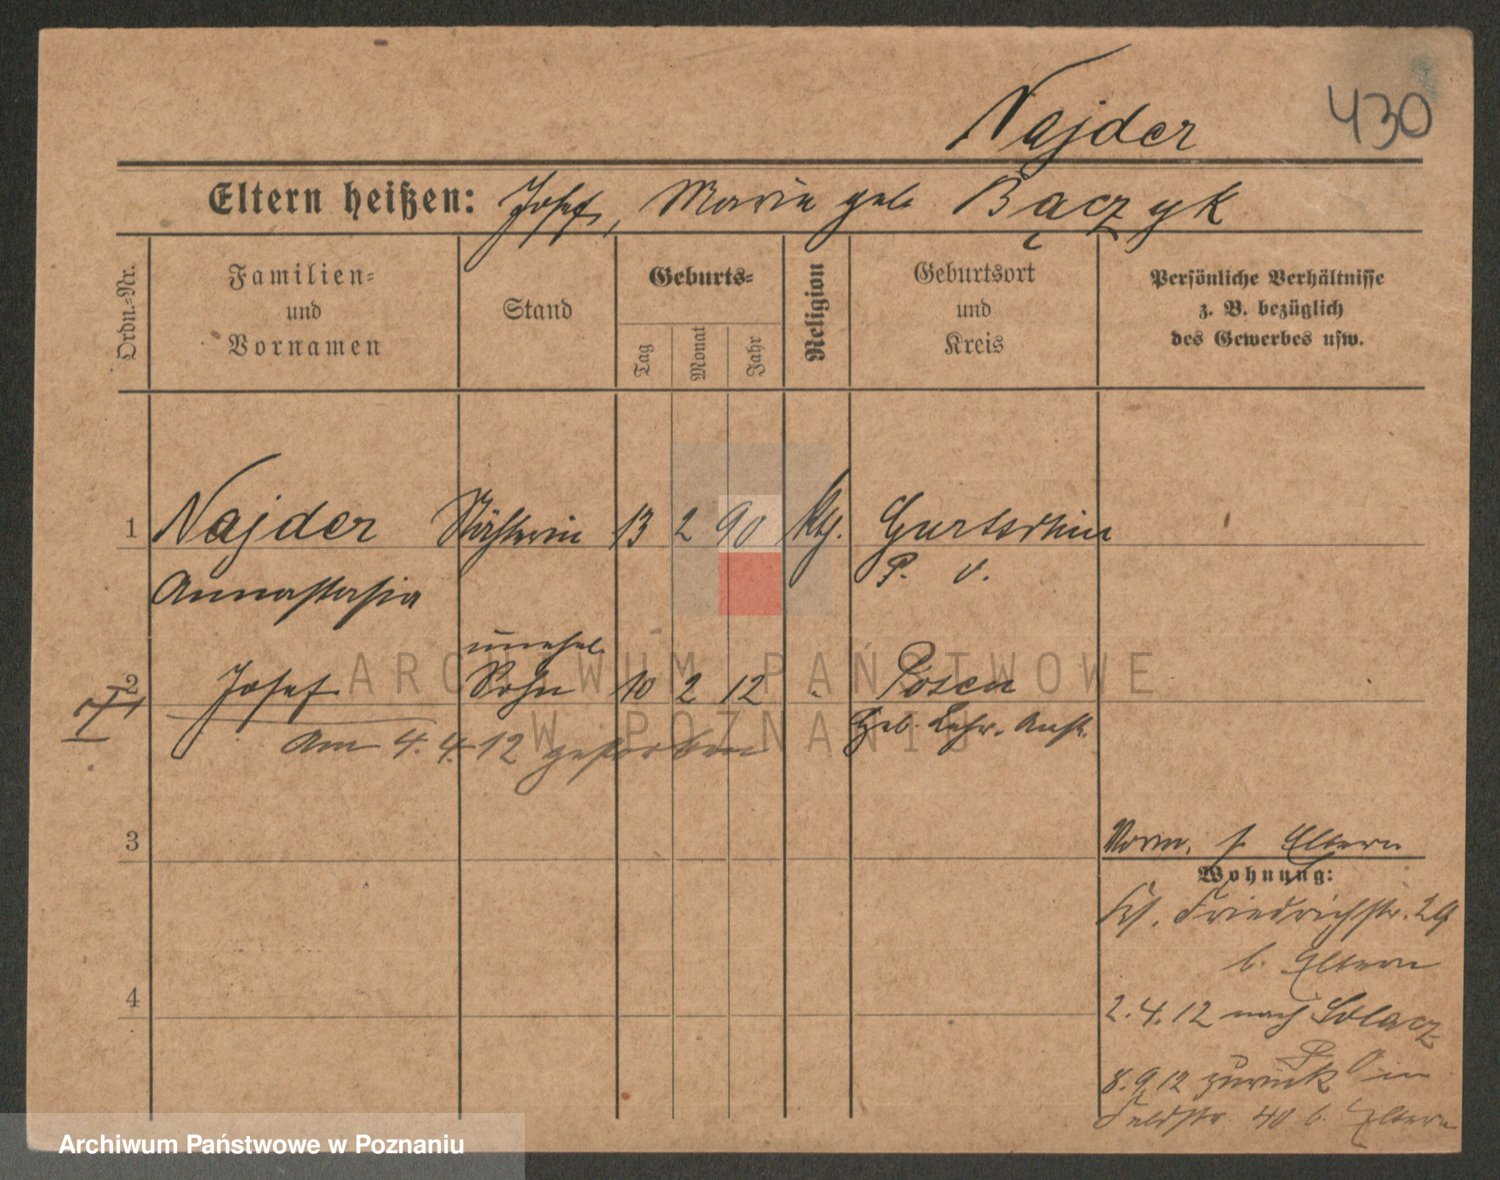 Najder
430
Eltern heißen: Josef, Marie geb Bączyk
Ordn.-Nr.
Familien-
und
Vornamen
Stand
Geburts-
Tag
Monat
Jahr
Religion
Geburtsort
und
Kreis
Persönliche Verhältnisse
z. B. bezüglich
des Gewerbes usw.
1 Najder Näherin 13 2 90 ktg. Gurtschin
Annastasia P. O.
unehel.
2 Josef Sohn 10 2 12 " Posen
Geb. Lehr. Anst.
Am 4.4.12 gestorben
3
Vorm. s. Eltern
Wohnung:
Friedrichstr. 29
b. Eltern
4
2.4.12 nach Solacz
8.9.12 zurück in
Feldstr. 40 b. Eltern
ARCHIWUM PAŃSTWOWE
W POZNANIU
Archiwum Państwowe w Poznaniu